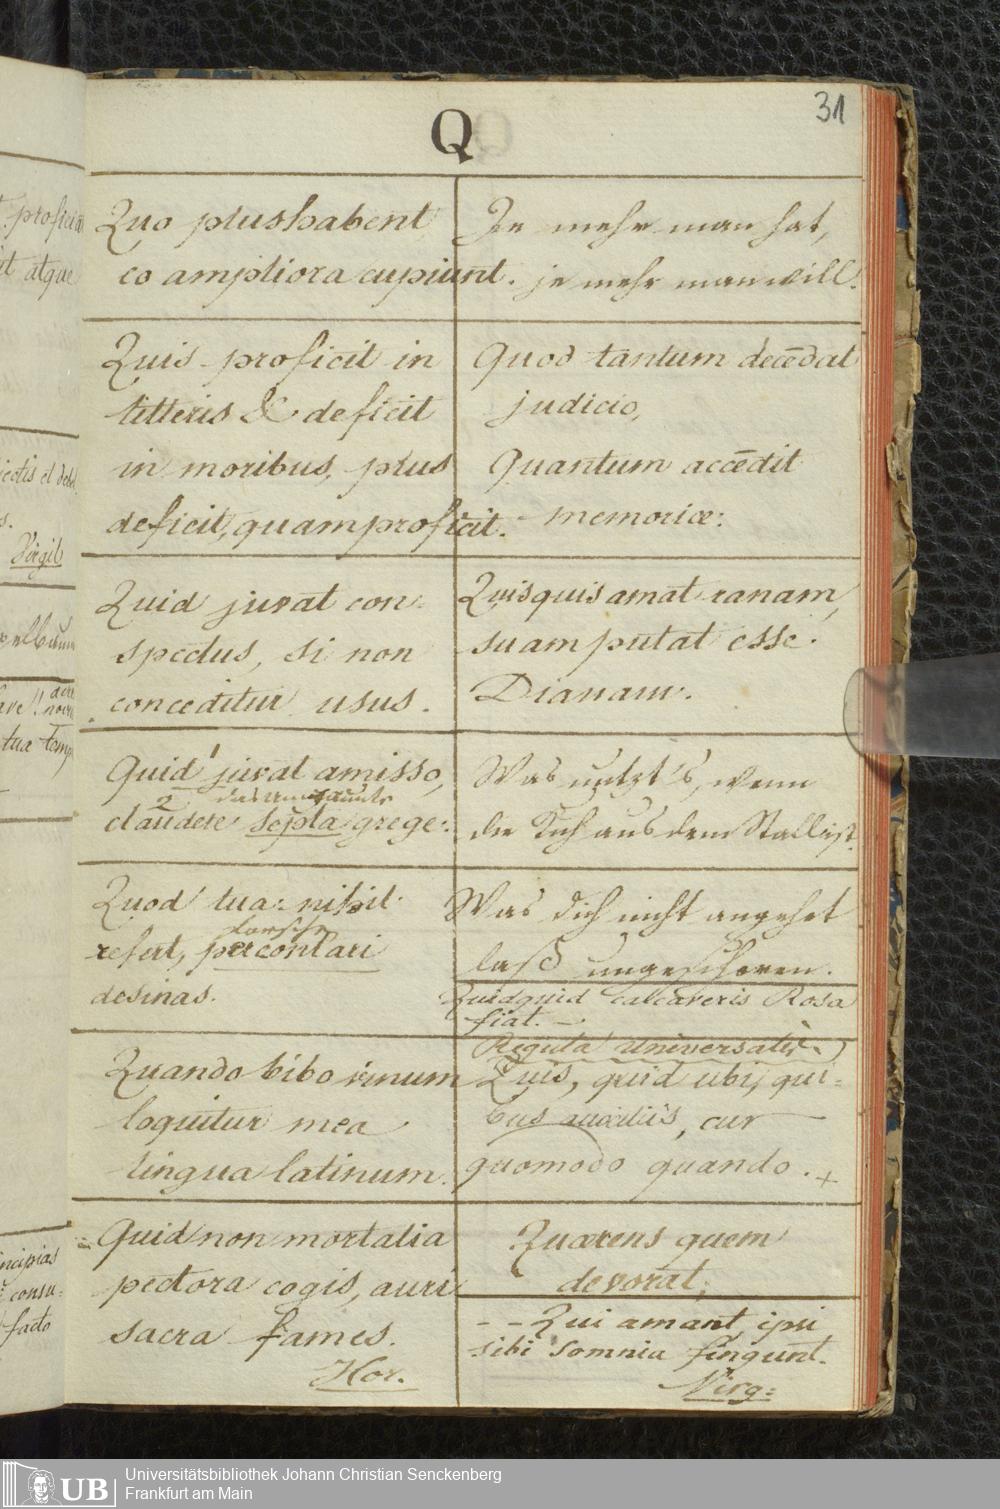 31
Q
Quo plus habent
eo ampliora cupiunt.
Je mehr man hat,
je mehr man will.
Quis proficit in
litteris & deficit
in moribus, plus
deficit, quam proficit.
Quod tantum decēdat
judicio,
Quantum accēdit
memoriæ:
Quid juvat con-
spectus, si non
conceditur usus.
Quisquis amat ranam,
suam putat esse
Dianam.
Quid juvat amisso,
claudere septa grege:
Was nützt's, wenn
die Kuh aus dem Stall ist.
Quod tua nihil
refert, percontari
desinas.
Was dich nicht angehet
laß ungeschoren.
Quidquid calcaveris Rosa
fiat.
Regula universalis
Quando bibo vinum
loquitur mea
lingua latinum.
Quis, quid ubi, qui-
bus auxiliis, cur
quomodo quando. +
Quid non mortalia
pectora cogis, auri
sacra fames.
Hor.
Quærens quem
devorat.
- - Qui amant ipsi
sibi somnia fingunt.
Virg:
proficit
it atque
Virgil
tua
incipias
consu-
facto
UB
Universitätsbibliothek Johann Christian Senckenberg
Frankfurt am Main